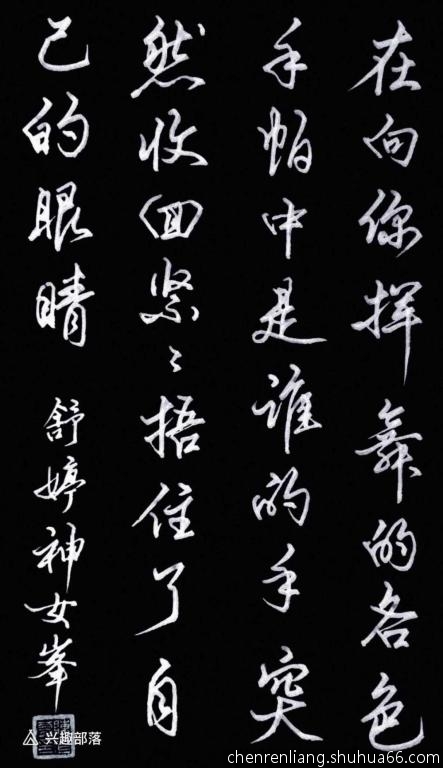 在向你揮舞的各色
手帕中是谁的手突
然收回紧々捂住了自
己的眼睛
舒婷神女峯
兴趣部落
chenrenliang.shuhua66.com